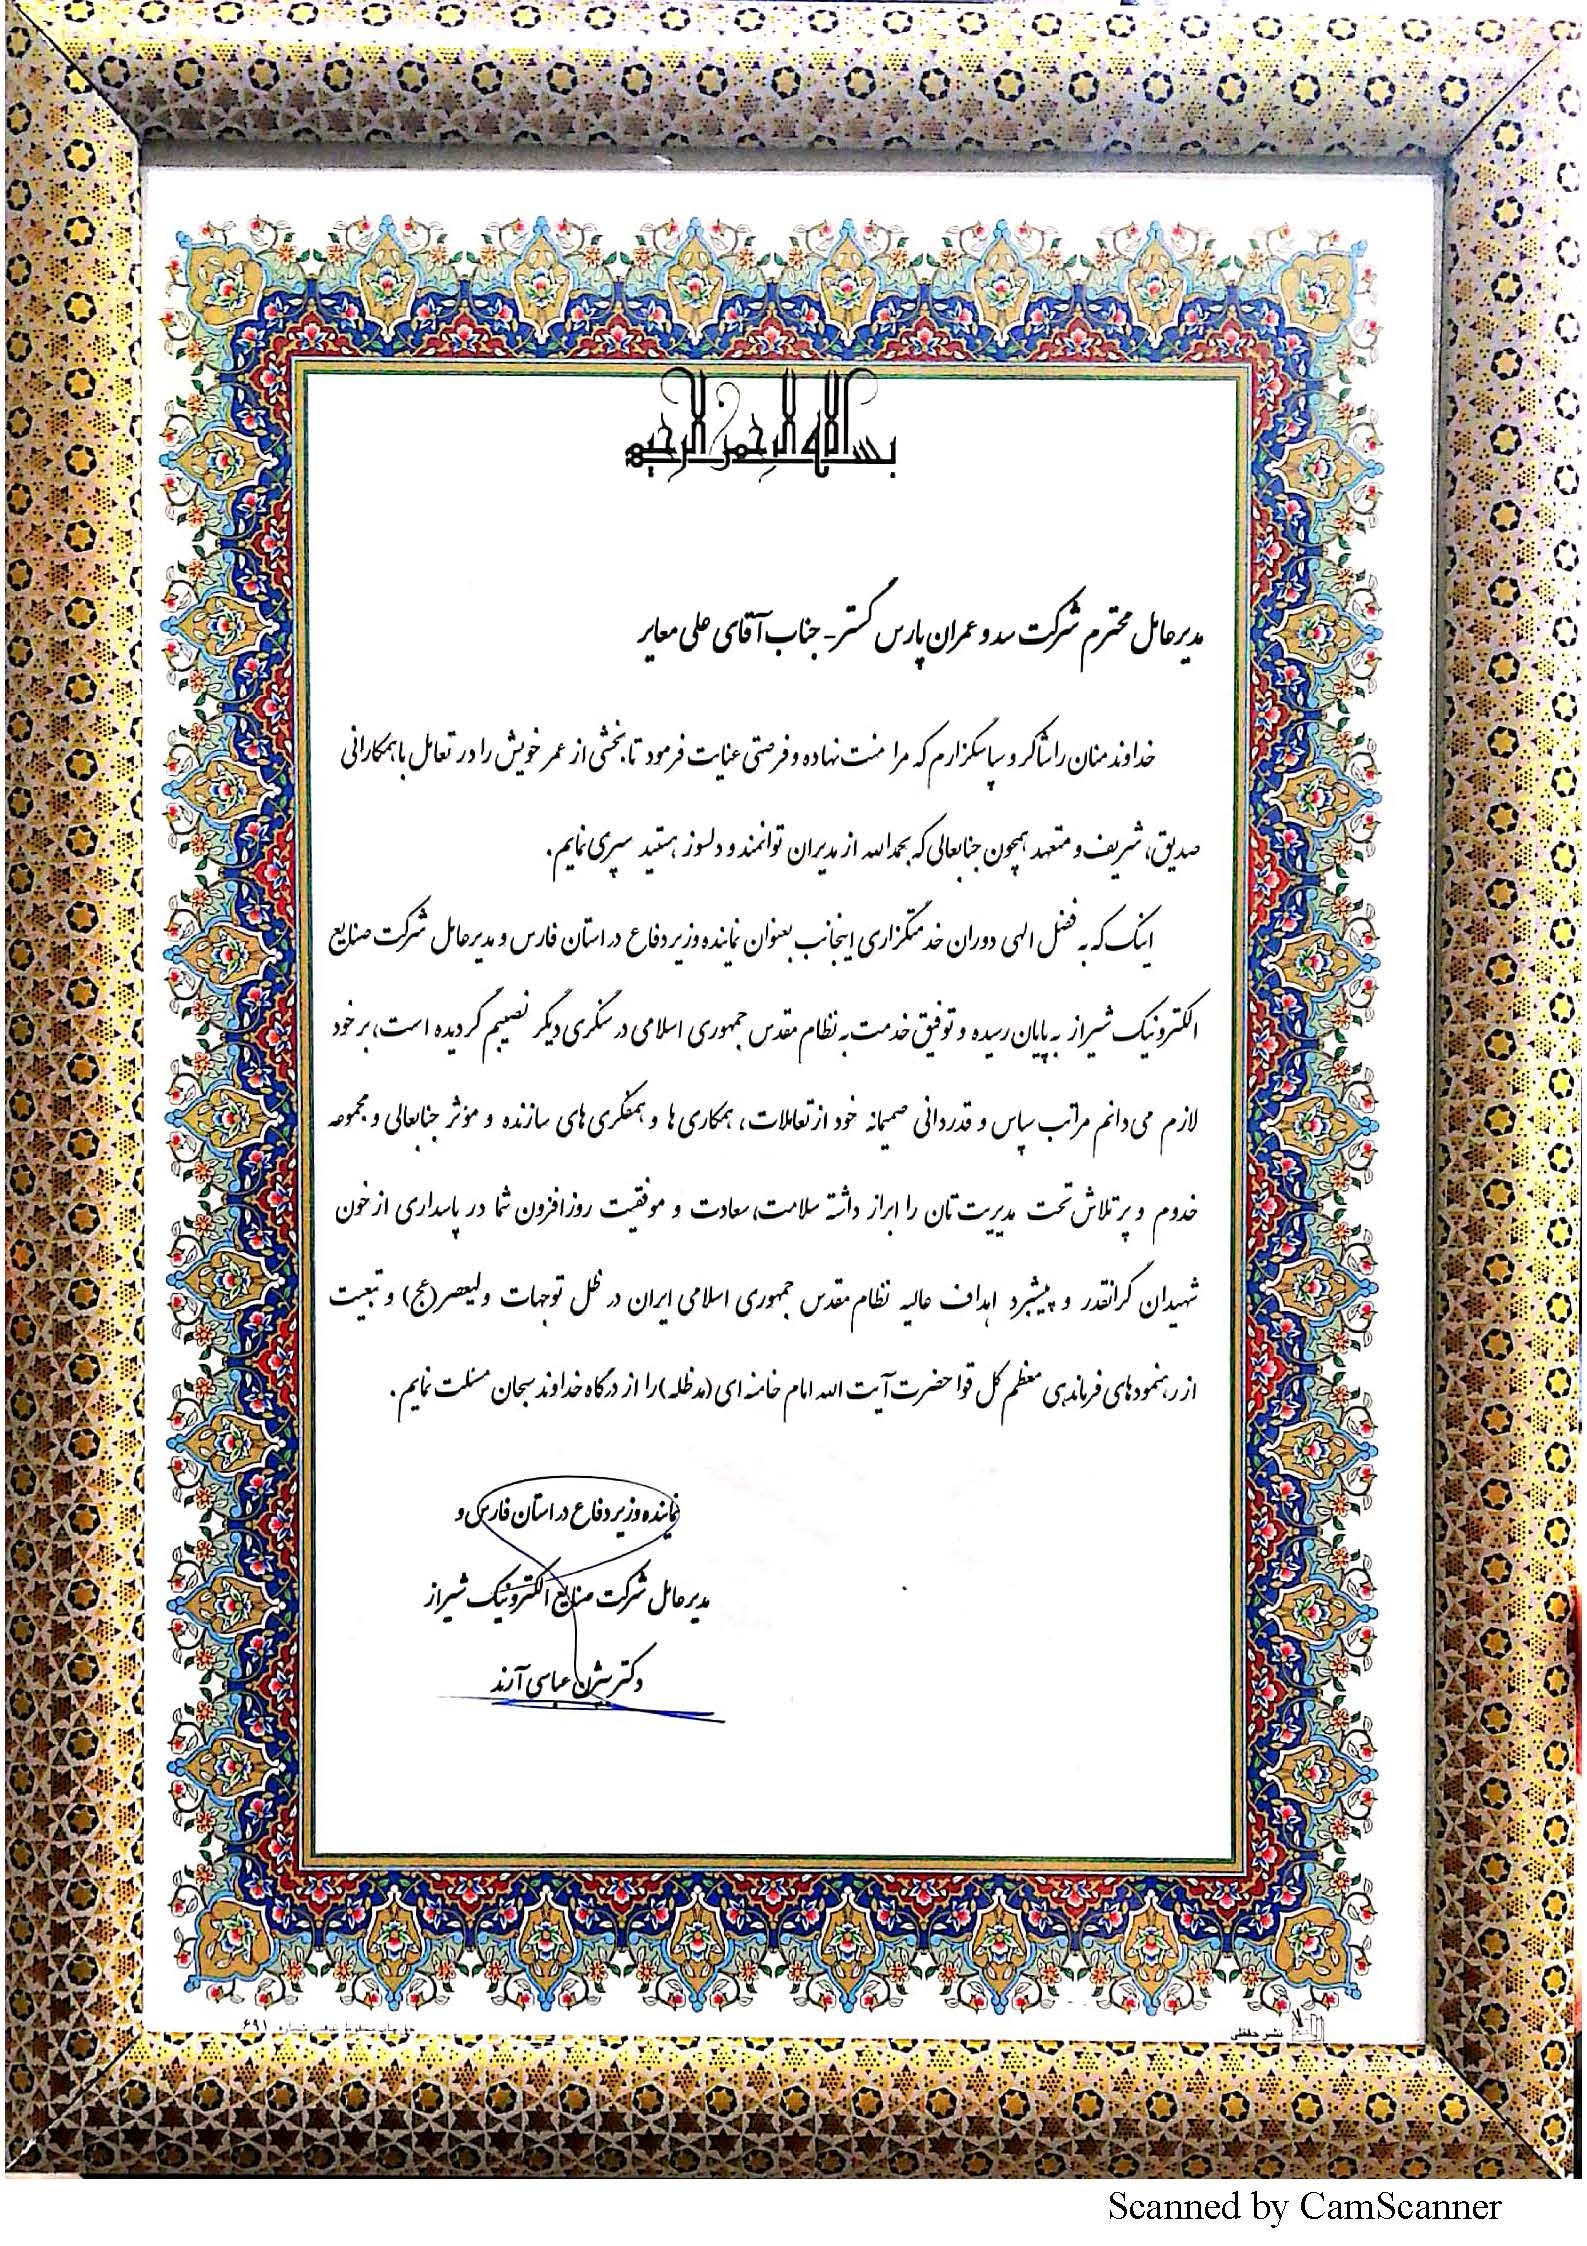 بسم الله الرحمن الرحیم
مدیرعامل محترم شرکت سد و عمران پارس گستر - جناب آقای علی معایر
خداوند منان را شاکر و سپاسگزارم که مرا منت نهاده و فرصتی عنایت فرمود تا بخشی از عمر خویش را در تعامل با همکارانی
صدیق، شریف و متعهد همچون جنابعالی که بحمدالله از مدیران توانمند و دلسوز هستید سپری نمایم.
اینک که به فضل الهی دوران خدمتگزاری اینجانب بعنوان نماینده وزیر دفاع در استان فارس و مدیرعامل شرکت صنایع
الکترونیک شیراز به پایان رسیده و توفیق خدمت به نظام مقدس جمهوری اسلامی در سنگری دیگر نصیبم گردیده است، بر خود
لازم می‌دانم مراتب سپاس و قدردانی صمیمانه خود از تعاملات، همکاری ها و همفکری های سازنده و مؤثر جنابعالی و مجموعه
خدوم و پرتلاش تحت مدیریت تان را ابراز داشته سلامت، سعادت و موفقیت روزافزون شما در پاسداری از خون
شهیدان گرانقدر و پیشبرد اهداف عالیه نظام مقدس جمهوری اسلامی ایران در ظل توجهات ولیعصر (عج) و تبعیت
از رهنمودهای فرماندهی معظم کل قوا حضرت آیت الله امام خامنه ای (مدظله) را از درگاه خداوند سبحان مسئلت نمایم.
نماینده وزیر دفاع در استان فارس و
مدیرعامل شرکت صنایع الکترونیک شیراز
دکتر بیژن عباسی آرند
نشر حافظی
۶۹۱
Scanned by CamScanner